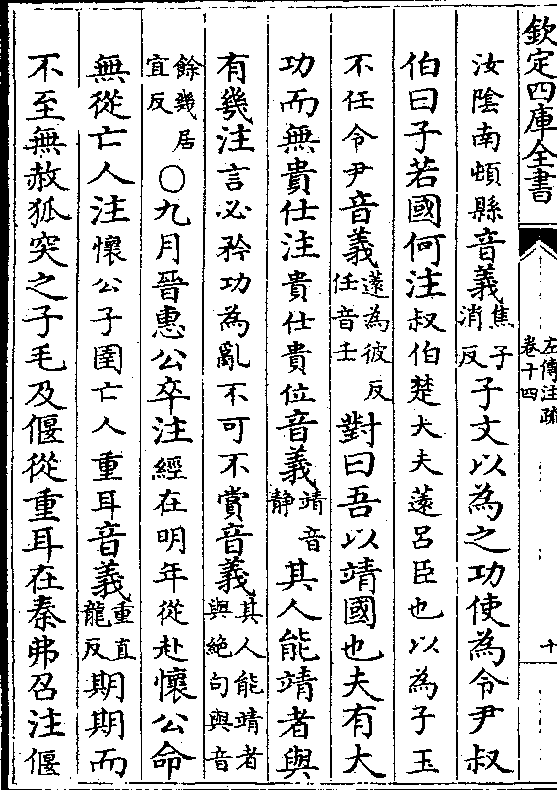 欽定四庫全書
左傳注疏
卷十四
十
汝陰南頓縣音義焦子消反子文以為之功使為令尹叔
伯曰子若國何注叔伯楚大夫薳呂臣也以為子玉
不任令尹音義薳為彼反任音壬對曰吾以靖國也夫有大
功而無貴仕注貴仕貴位音義靖音靜其人能靖者與
有幾注言必矜功為亂不可不賞音義其人能靖者與絶句與音
餘幾居宜反○九月晉惠公卒注經在明年從赴懷公命
無從亡人注懷公子圉亡人重耳音義重直龍反期期而
不至無赦狐突之子毛及偃從重耳在秦弗召注偃